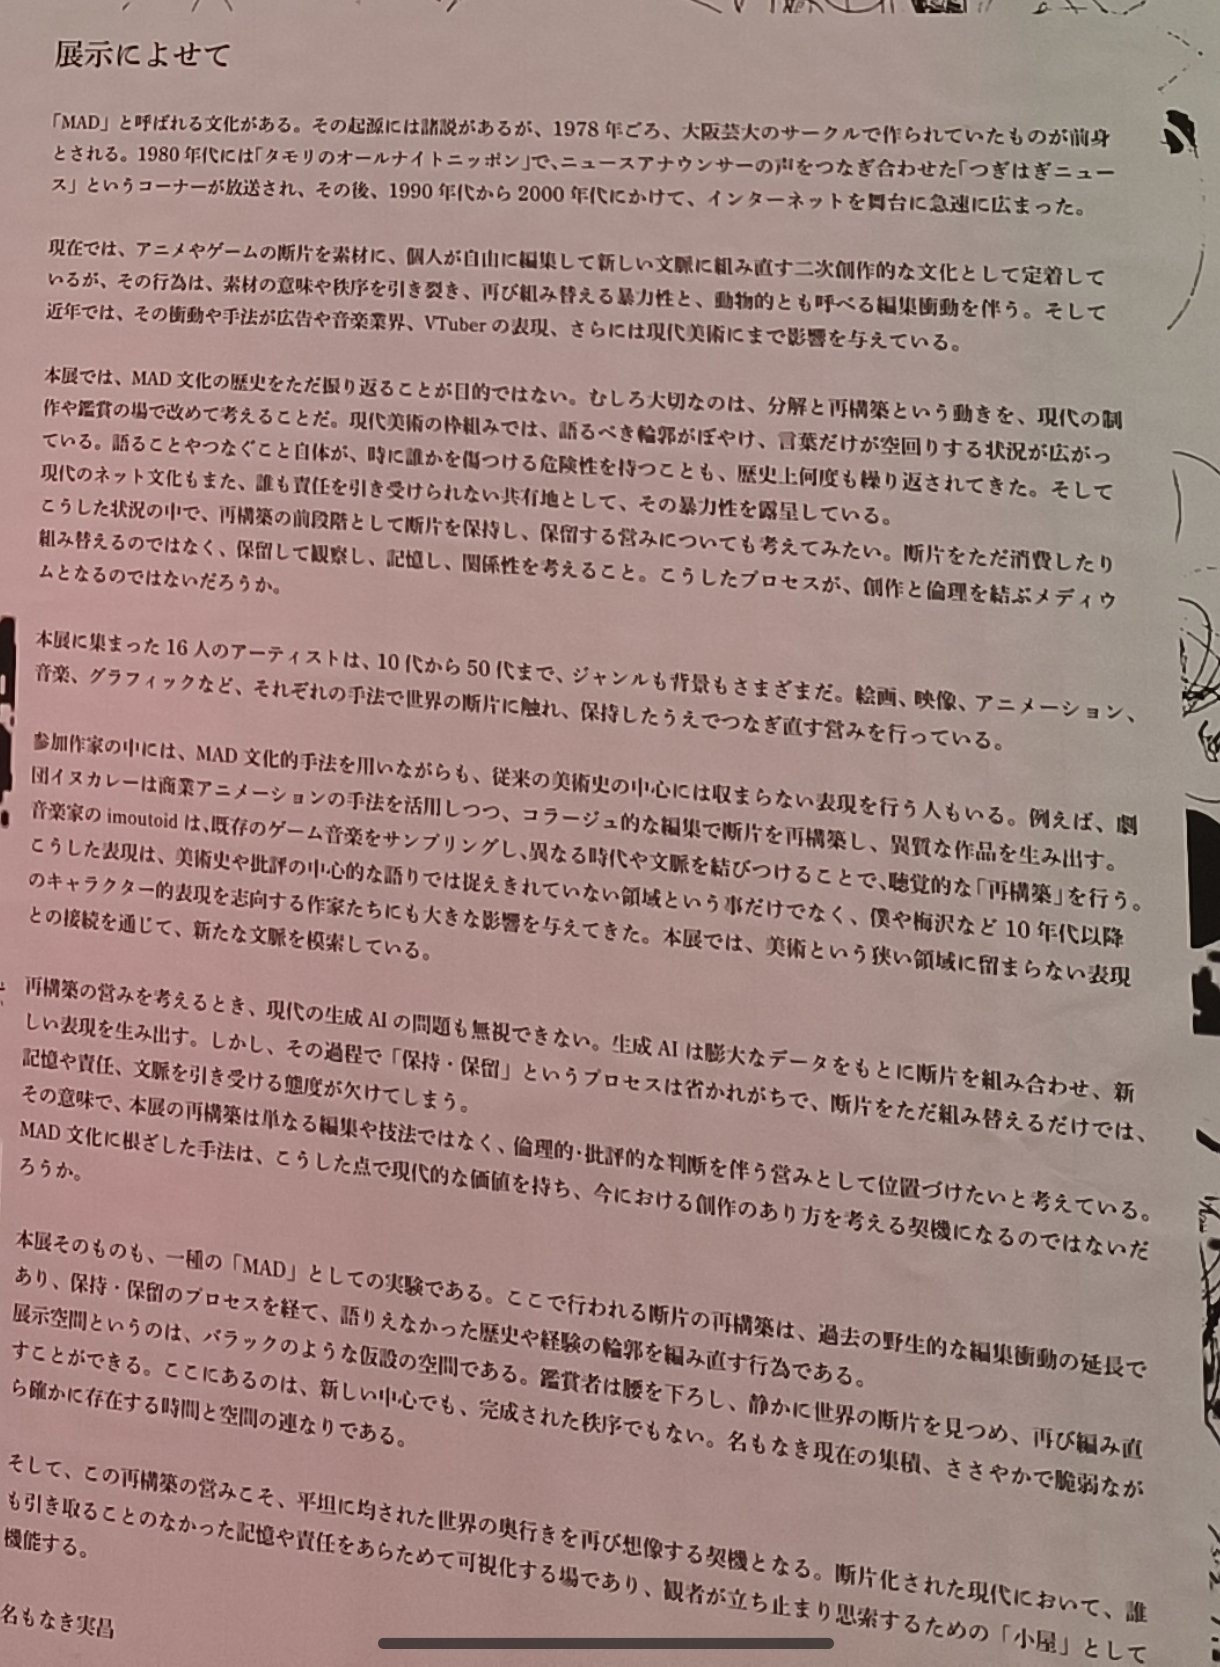 展示によせて
「MAD」と呼ばれる文化がある。その起源には諸説があるが、1978 年ごろ、大阪芸大のサークルで作られていたものが前身
とされる。1980 年代には「タモリのオールナイトニッポン」で、ニュースアナウンサーの声をつなぎ合わせた「つぎはぎニュー
ス」というコーナーが放送され、その後、1990 年代から 2000 年代にかけて、インターネットを舞台に急速に広まった。
現在では、アニメやゲームの断片を素材に、個人が自由に編集して新しい文脈に組み直す二次創作的な文化として定着して
いるが、その行為は、素材の意味や秩序を引き裂き、再び組み替える暴力性と、動物的とも呼べる編集衝動を伴う。そして
近年では、その衝動や手法が広告や音楽業界、VTuber の表現、さらには現代美術にまで影響を与えている。
本展では、MAD 文化の歴史をただ振り返ることが目的ではない。むしろ大切なのは、分解と再構築という動きを、現代の制
作や鑑賞の場で改めて考えることだ。現代美術の枠組みでは、語るべき輪郭がぼやけ、言葉だけが空回りする状況が広がっ
ている。語ることやつなぐこと自体が、時に誰かを傷つける危険性を持つことも、歴史上何度も繰り返されてきた。そして
現代のネット文化もまた、誰も責任を引き受けられない共有地として、その暴力性を露呈している。
こうした状況の中で、再構築の前段階として断片を保持し、保留する営みについても考えてみたい。断片をただ消費したり
組み替えるのではなく、保留して観察し、記憶し、関係性を考えること。こうしたプロセスが、創作と倫理を結ぶメディウ
ムとなるのではないだろうか。
本展に集まった 16 人のアーティストは、10 代から 50 代まで、ジャンルも背景もさまざまだ。絵画、映像、アニメーション、
音楽、グラフィックなど、それぞれの手法で世界の断片に触れ、保持したうえでつなぎ直す営みを行っている。
参加作家の中には、MAD 文化的手法を用いながらも、従来の美術史の中心には収まらない表現を行う人もいる。例えば、劇
団イヌカレーは商業アニメーションの手法を活用しつつ、コラージュ的な編集で断片を再構築し、異質な作品を生み出す。
音楽家の imoutoid は、既存のゲーム音楽をサンプリングし、異なる時代や文脈を結びつけることで、聴覚的な「再構築」を行う。
こうした表現は、美術史や批評の中心的な語りでは捉えきれていない領域という事だけでなく、僕や梅沢など 10 年代以降
のキャラクター的表現を志向する作家たちにも大きな影響を与えてきた。本展では、美術という狭い領域に留まらない表現
との接続を通じて、新たな文脈を模索している。
再構築の営みを考えるとき、現代の生成 AI の問題も無視できない。生成 AI は膨大なデータをもとに断片を組み合わせ、新
しい表現を生み出す。しかし、その過程で「保持・保留」というプロセスは省かれがちで、断片をただ組み替えるだけでは、
記憶や責任、文脈を引き受ける態度が欠けてしまう。
その意味で、本展の再構築は単なる編集や技法ではなく、倫理的・批評的な判断を伴う営みとして位置づけたいと考えている。
MAD 文化に根ざした手法は、こうした点で現代的な価値を持ち、今における創作のあり方を考える契機になるのではないだ
ろうか。
本展そのものも、一種の「MAD」としての実験である。ここで行われる断片の再構築は、過去の野生的な編集衝動の延長で
あり、保持・保留のプロセスを経て、語りえなかった歴史や経験の輪郭を編み直す行為である。
展示空間というのは、バラックのような仮設の空間である。鑑賞者は腰を下ろし、静かに世界の断片を見つめ、再び編み直
すことができる。ここにあるのは、新しい中心でも、完成された秩序でもない。名もなき現在の集積、ささやかで脆弱なが
ら確かに存在する時間と空間の連なりである。
そして、この再構築の営みこそ、平坦に均された世界の奥行きを再び想像する契機となる。断片化された現代において、誰
も引き取ることのなかった記憶や責任をあらためて可視化する場であり、観者が立ち止まり思索するための「小屋」として
機能する。
名もなき実昌